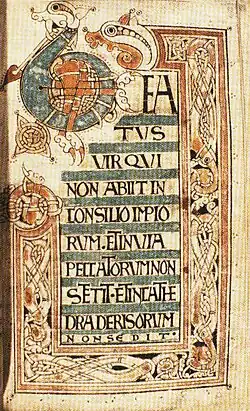 BEA
TUS
VIR QUI
NON ABIIT IN
CONSILIO IMPIO
RUM· ET IN VIA
PECCATORUM NON
STETIT· ET IN CATHE
DRA DERISORUM
NON SEDIT·